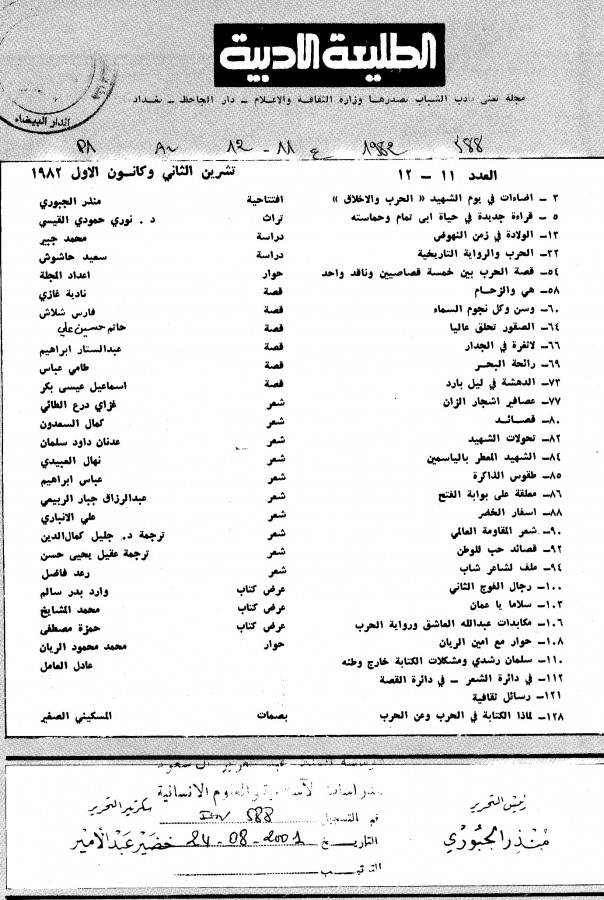 الطليعة الادبية
مجلة تعنى بادب الشباب تصدرها وزارة الثقافة والاعلام ـ دار الجاحظ ـ بغداد
الدار البيضاء
P1 A2 12 - 11 ع 1982 588
العدد ١١ ـ ١٢ تشرين الثاني وكانون الاول ١٩٨٢
٣ـ اضاءات في يوم الشهيد « الحرب والاخلاق » افتتاحية منذر الجبوري
٥ـ قراءة جديدة في حياة ابي تمام وحماسته تراث د . نوري حمودي القيسي
١٣ـ الولادة في زمن النهوض دراسة محمد جبير
٣٢ـ الحرب والرواية التاريخية دراسة سعيد حاشوش
٥٤ـ قصة الحرب بين خمسة قصاصيين وناقد واحد حوار اعداد المجلة
٥٨ـ هي والزحام قصة نادية غازي
٦٠ـ وسن وكل نجوم السماء قصة فارس شلاش
٦٤ـ الصقور تحلق عاليا قصة حاتم حسين علي
٦٦ـ لاثغرة في الجدار قصة عبدالستار ابراهيم
٦٩ـ رائحة البحر قصة طامي عباس
٧٣ـ الدهشة في ليل بارد قصة اسماعيل عيسى بكر
٧٧ـ عصافير اشجار الزان شعر غزاي درع الطائي
٨٠ـ قصائد شعر كمال السعدون
٨٢ـ تحولات الشهيد شعر عدنان داود سلمان
٨٤ـ الشهيد المعطر بالياسمين شعر نهال العبيدي
٨٥ـ طقوس الذاكرة شعر عباس ابراهيم
٨٦ـ معلقة على بوابة الفتح شعر عبدالرزاق جبار الربيعي
٨٨ـ اسفار الخضر شعر علي الانباري
٩٠ـ شعر المقاومة العالمي شعر ترجمة د. جليل كمال‌الدين
٩٢ـ قصائد حب للوطن شعر ترجمة عقيل يحيى حسن
٩٤ـ ملف لشاعر شاب شعر رعد فاضل
١٠٠ـ رجال الفوج الثاني عرض كتاب وارد بدر سالم
١٠٣ـ سلاما يا عمان عرض كتاب محمد المشايخ
١٠٦ـ مكابدات عبدالله العاشق ورواية الحرب عرض كتاب حمزة مصطفى
١٠٨ـ حوار مع امين الريان حوار محمد محمود الريان
١١٠ـ سلمان رشدي ومشكلات الكتابة خارج وطنه عادل العامل
١١٢ـ في دائرة الشعر ـ في دائرة القصة
١٢١ـ رسائل ثقافية
١٢٨ـ لماذا الكتابة في الحرب وعن الحرب بصمات المسكيني الصغير
والعلوم الانسانية
رئيس التحرير
منذر الجبوري
سكرتير التحرير
خضير عبد الامير
التسجيل 588
التاريخ 24-08-2001
الترتيب